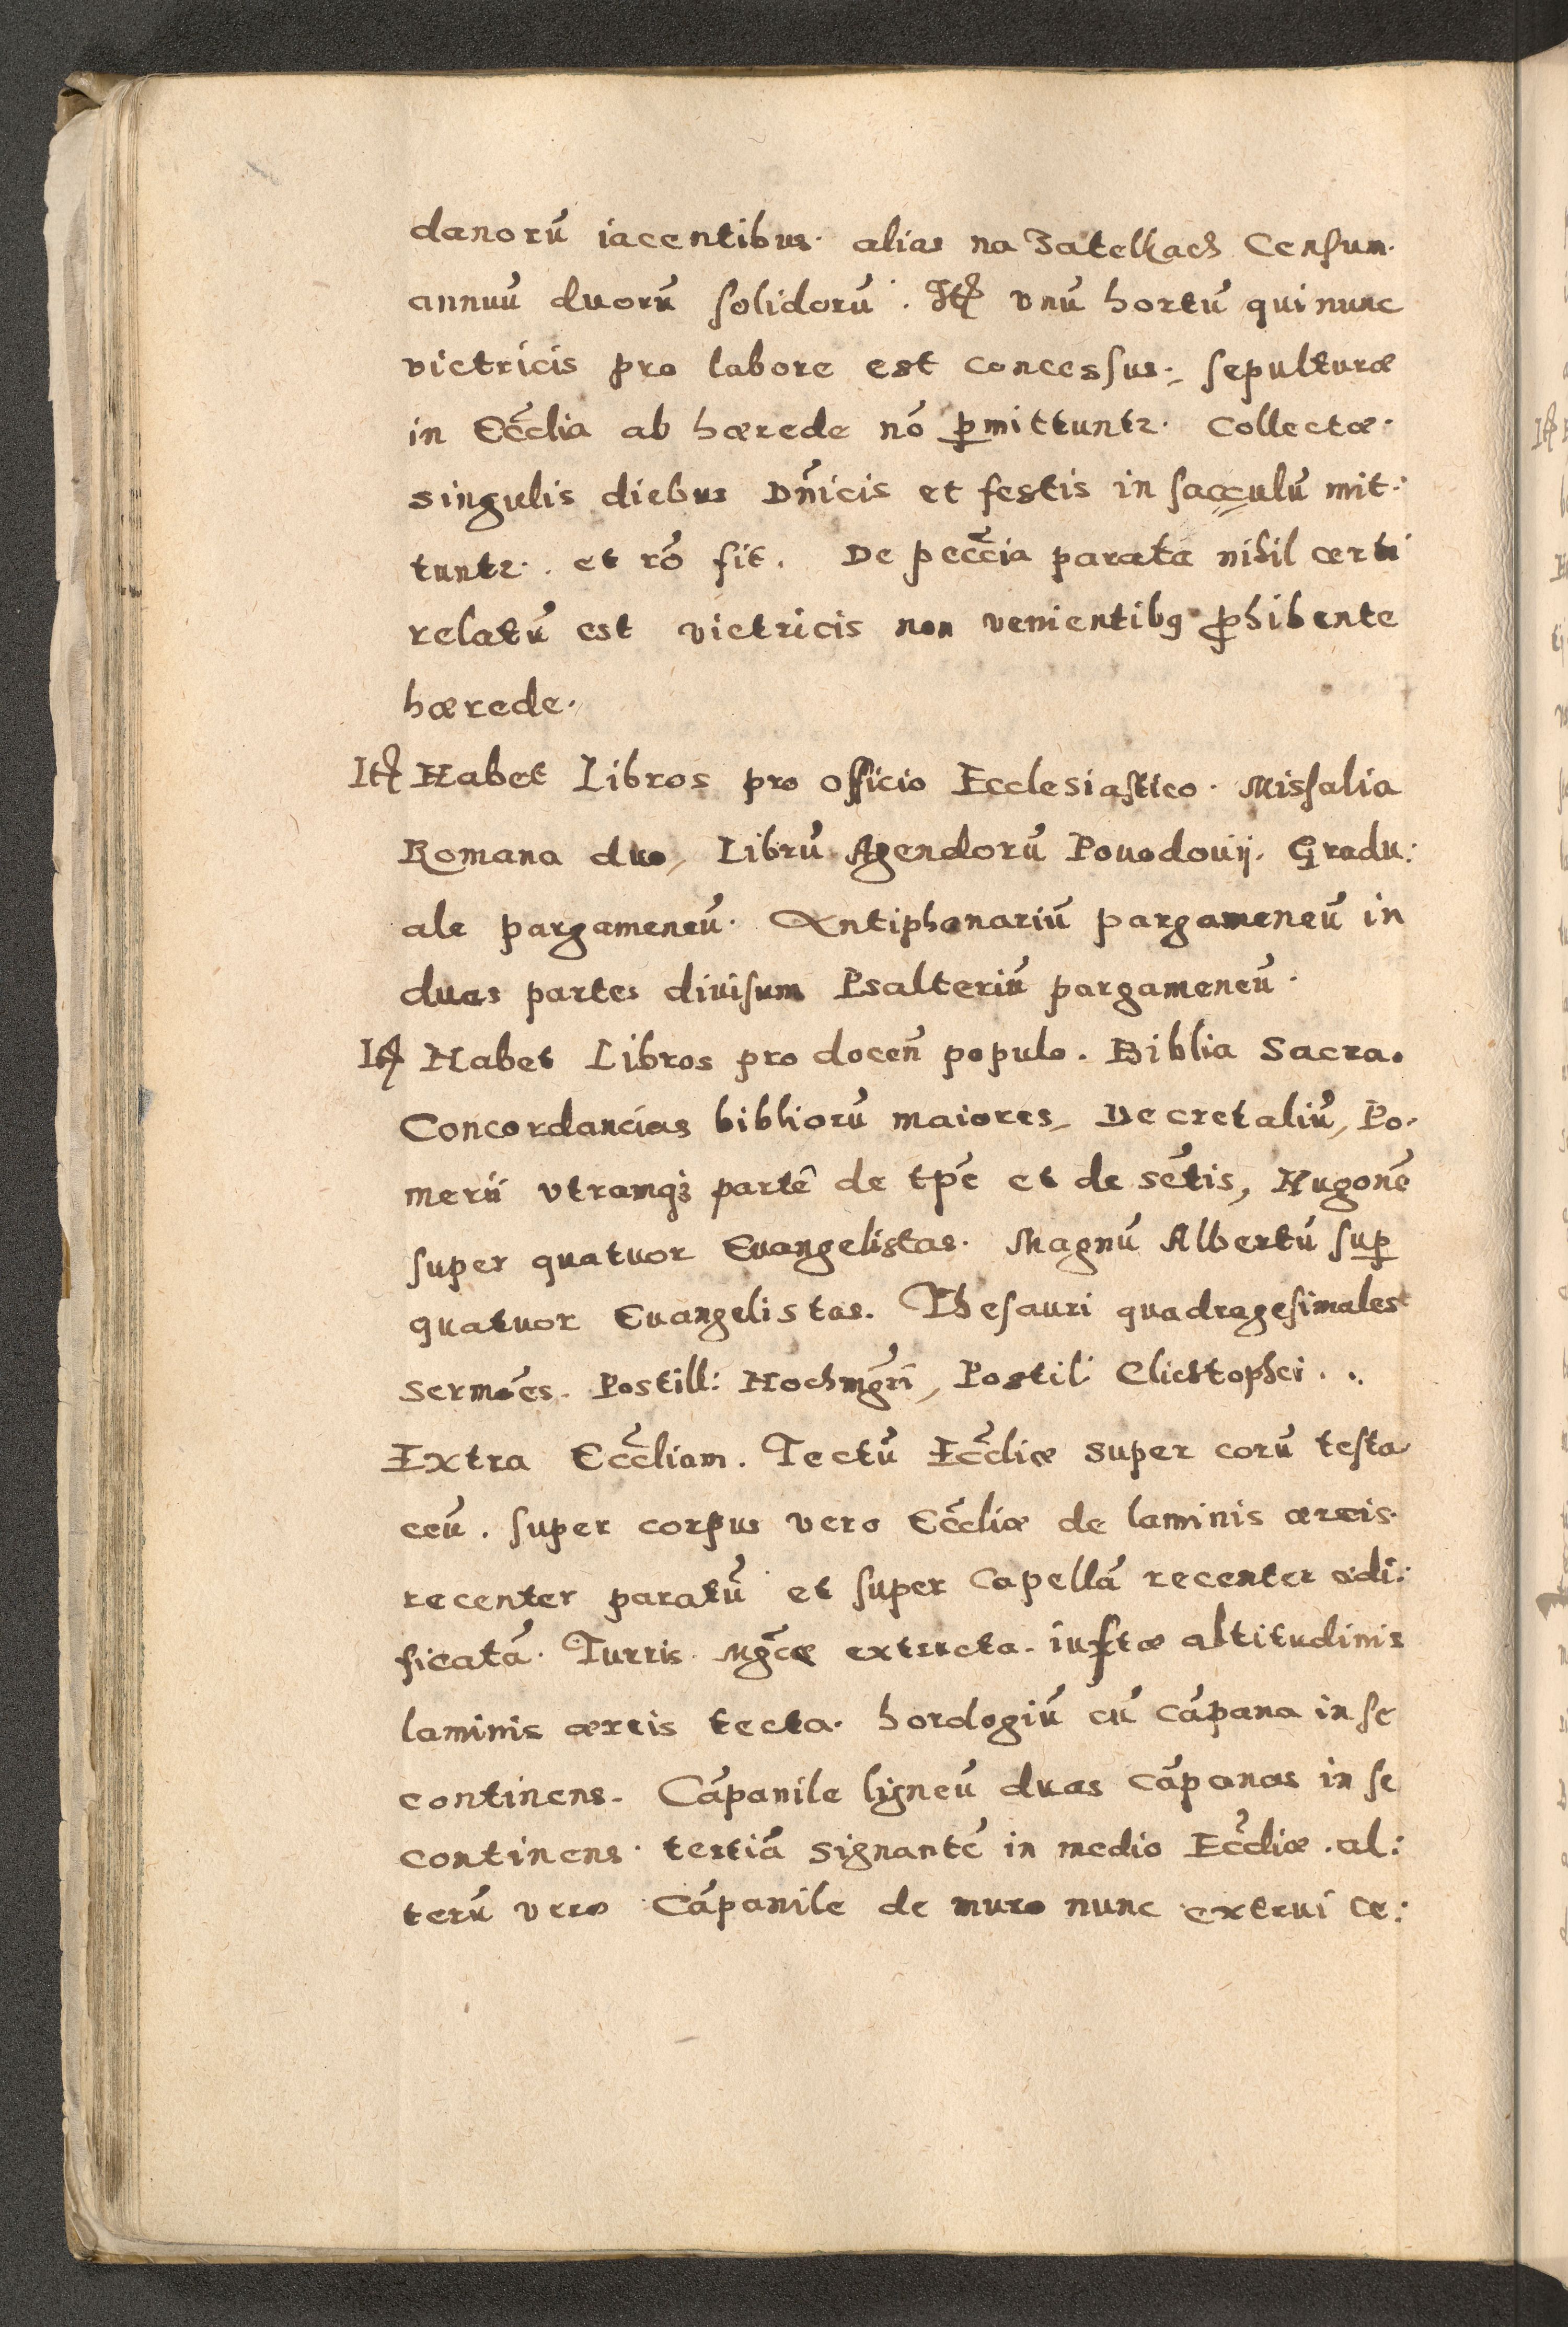 danorū iacentibus. alias na Zatelkach Censum.
annuū duorū solidorū. Itē vnū hortū qui nunc
victricis pro labore est concessus., sepulturæ
in Eccl̄ia ab hærede nō p̱mittuntr. Collectæ.
singulis diebus Dn̄icis et festis in sacculū mit:
tuntr. et rō fit. De pecc̄ia parata nihil certi
relatū est victricis non venientibꝰ ꝓhibente
hærede.
Itē Habet Libros pro officio Ecclesiastico. Missalia
Romana duo, Librū Agendorū Pouodouij. Gradu:
ale pargameneū. Antiphonariū pargameneū in
duas partes diuisum Psalteriū pargameneū.
Itē Habet Libros pro docen̄ populo. Biblia Sacra.
Concordancias bibliorū maiores, Decretaliū, Po.
merii vtramqꝫ partē de tp̄e et de sc̄tis, Hugonē
super quatuor Euangelistas. Magnū Albertū sup̱
quatuor Euangelistas. Thesauri quadragesimales
sermōes. Postill: Hochmḡri, Postil: Clichtophei...
Extra Eccl̄iam. Tectū Eccl̄iæ super corū testa
ceū. super corpus vero Eccl̄iæ de laminis æreis.
recenter paratū et super Capellā recenter ædi:
ficatā. Turris mgc̄æ extructa. iustæ altitudinis
laminis æreis tecta. horologiū cū cāpana in se
continens. Cāpanile ligneū duas cāpanas in se
continens. tertiā signantē in medio Eccl̄iæ. al:
terū vero Cāpanile de muro nunc extrui cæ: